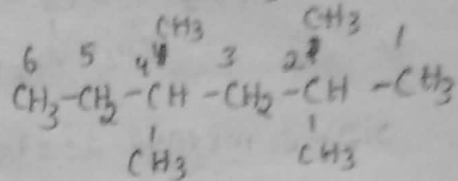 CH3 CH3
6 5 4 3 2 1
CH3-CH2-CH-CH2-CH-CH3
CH3 CH3